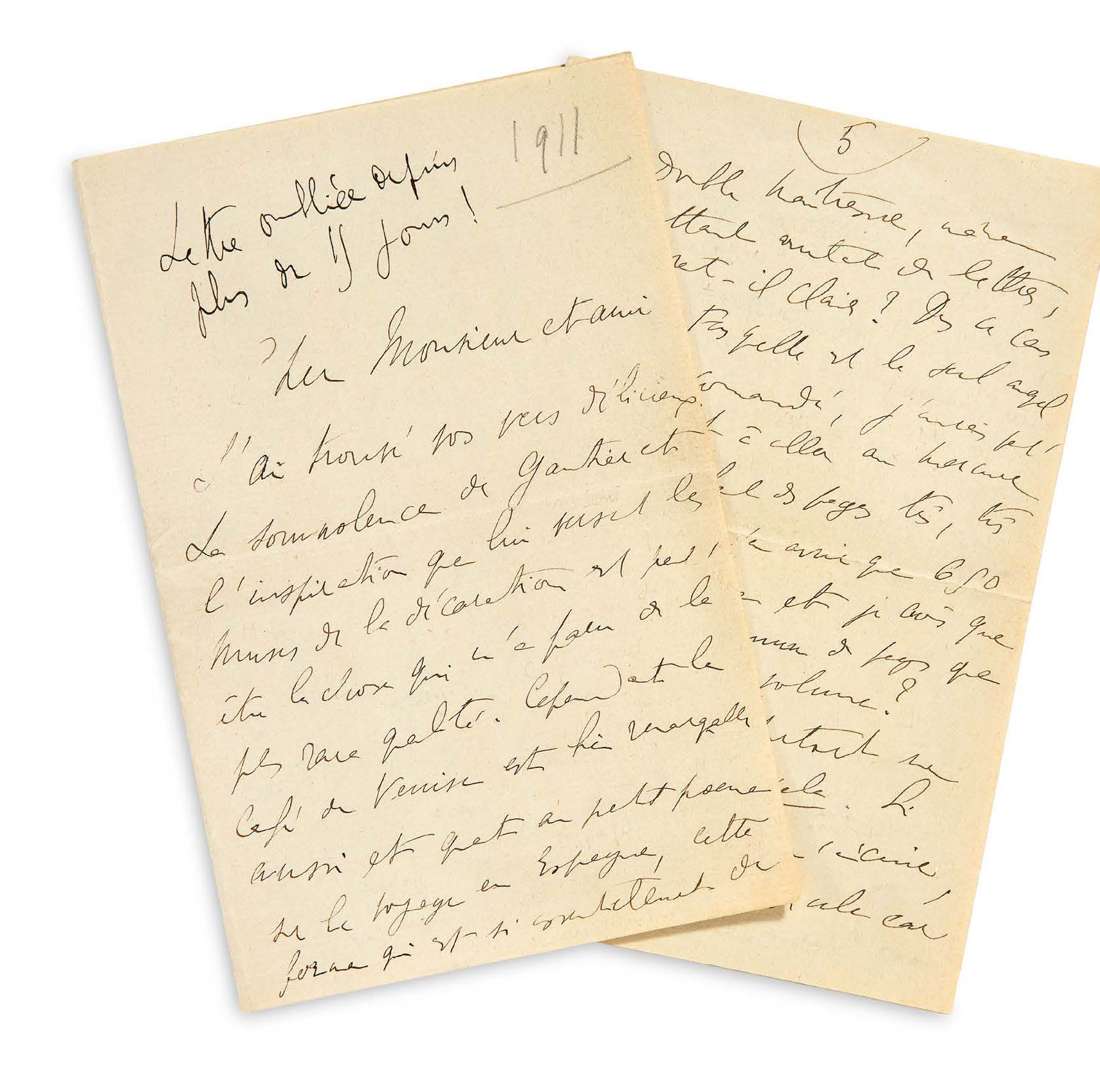 1911
Lettre oubliée depuis
plus de 15 jours !
Cher Monsieur et ami
J'ai trouvé vos vers délicieux.
La somnolence de Gautier et
l'inspiration que lui versent les
Muses de la décoration est peut
être la chose qui m'a paru de la
plus rare qualité. Cependant le
Café de Venise est bien remarquable
aussi et quant au petit poème
sur le voyage en Espagne, cette
forme qui est si
5
double maîtresse, même
de lettres,
-il clair ? Dans ce cas
Fasquelle est le seul auquel
j'aurais
à aller au Mercure
de pages très, très
que 650
et je crois que
de pages que
volume ?
cela. Si